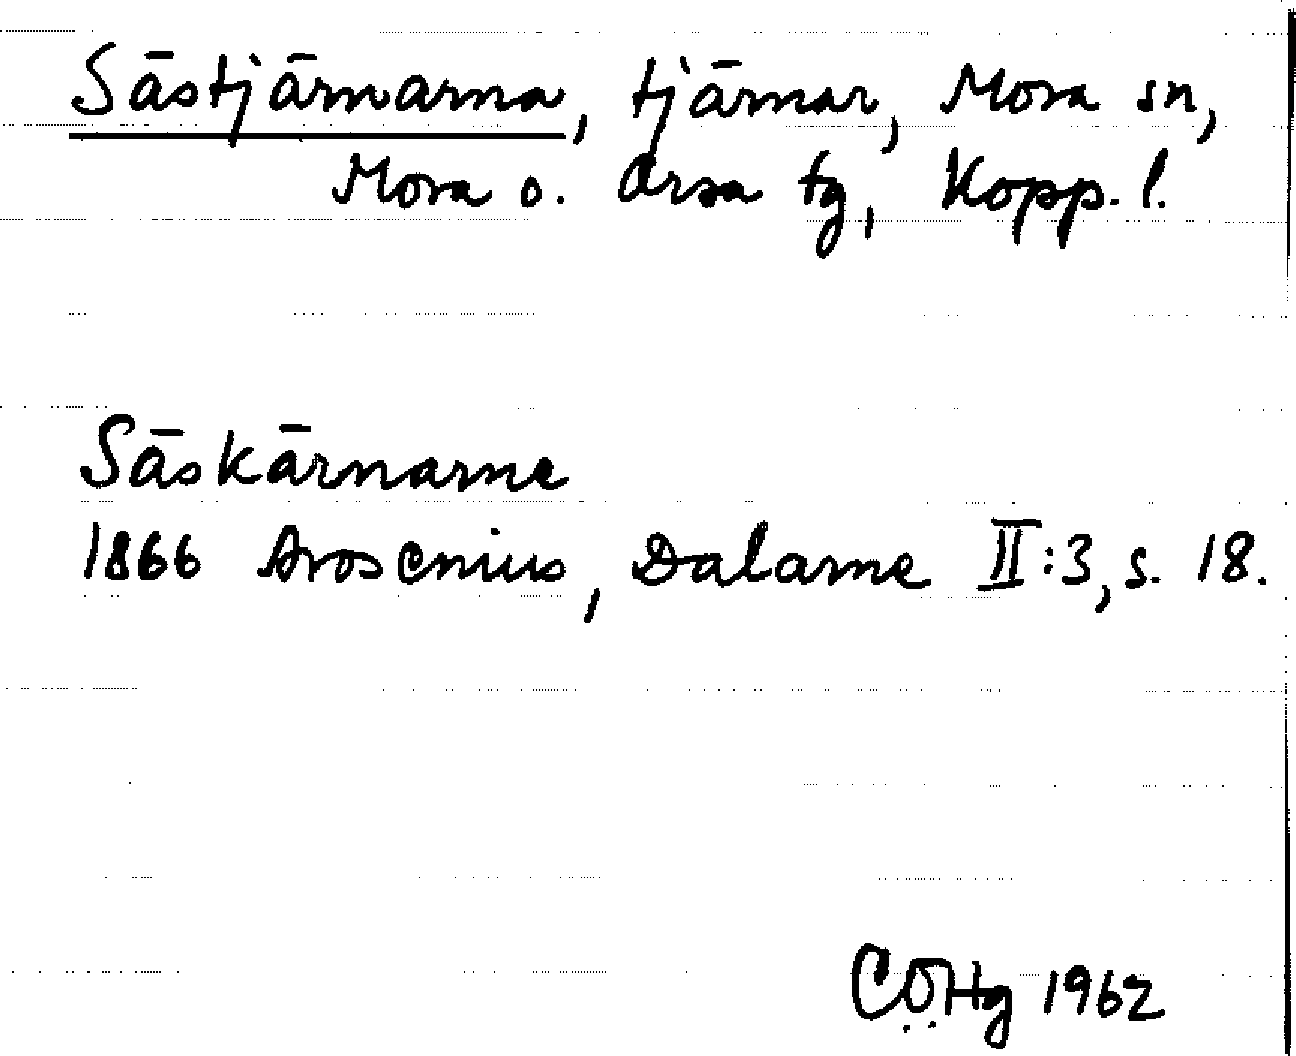 Sästjärnarna, tjärnar, Mora sn,
Mora o. Orsa tg, Kopp. l.
Säskärnarne
1866 Arosenius, Dalarne II:3, s. 18.
CÖHg 1962